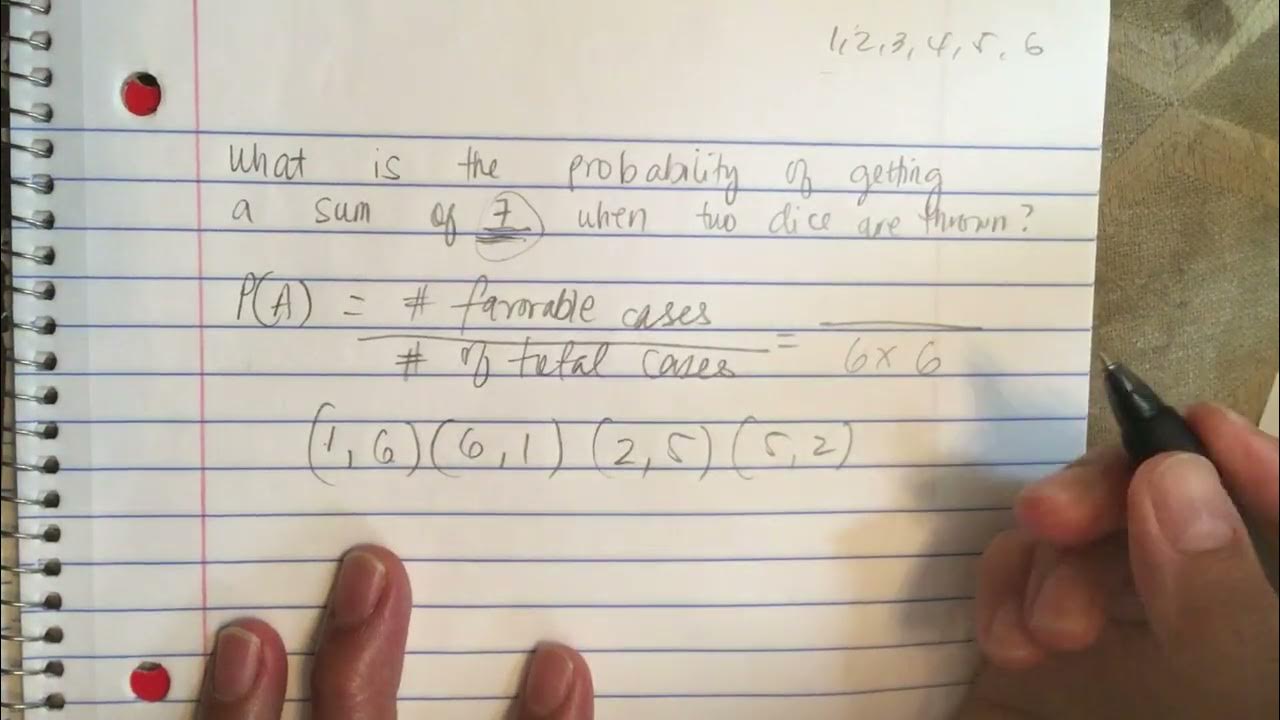 1, 2, 3, 4, 5, 6
What is the probability of getting
a sum of 7 when two dice are thrown?
P(A) = # favorable cases / # of total cases = / 6 x 6
(1, 6) (6, 1) (2, 5) (5, 2)